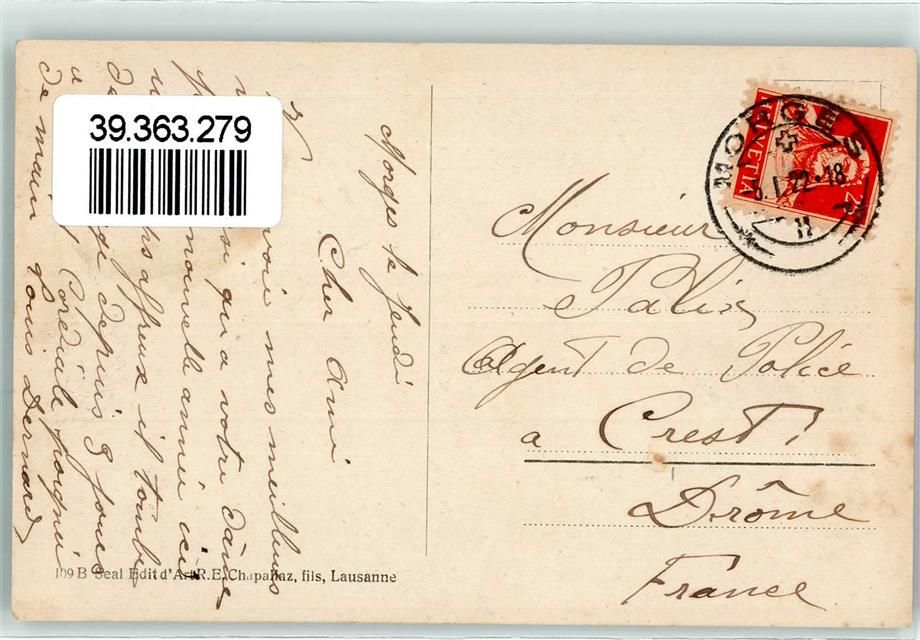 39.363.279
Morges le Jeudi
Cher Ami
voir mes meilleurs
si qu a votre dame
nouvelle année ici
affreux il tombe
depuis 8 jours
Cordiale poignée
de main Louis Bernard
Monsieur
Palix
Agent de Police
a Crest
Drôme
France
HELVETIA
MORGES
I. 22-18
109 B Seal Edit d'Art R.E. Chapallaz, fils, Lausanne